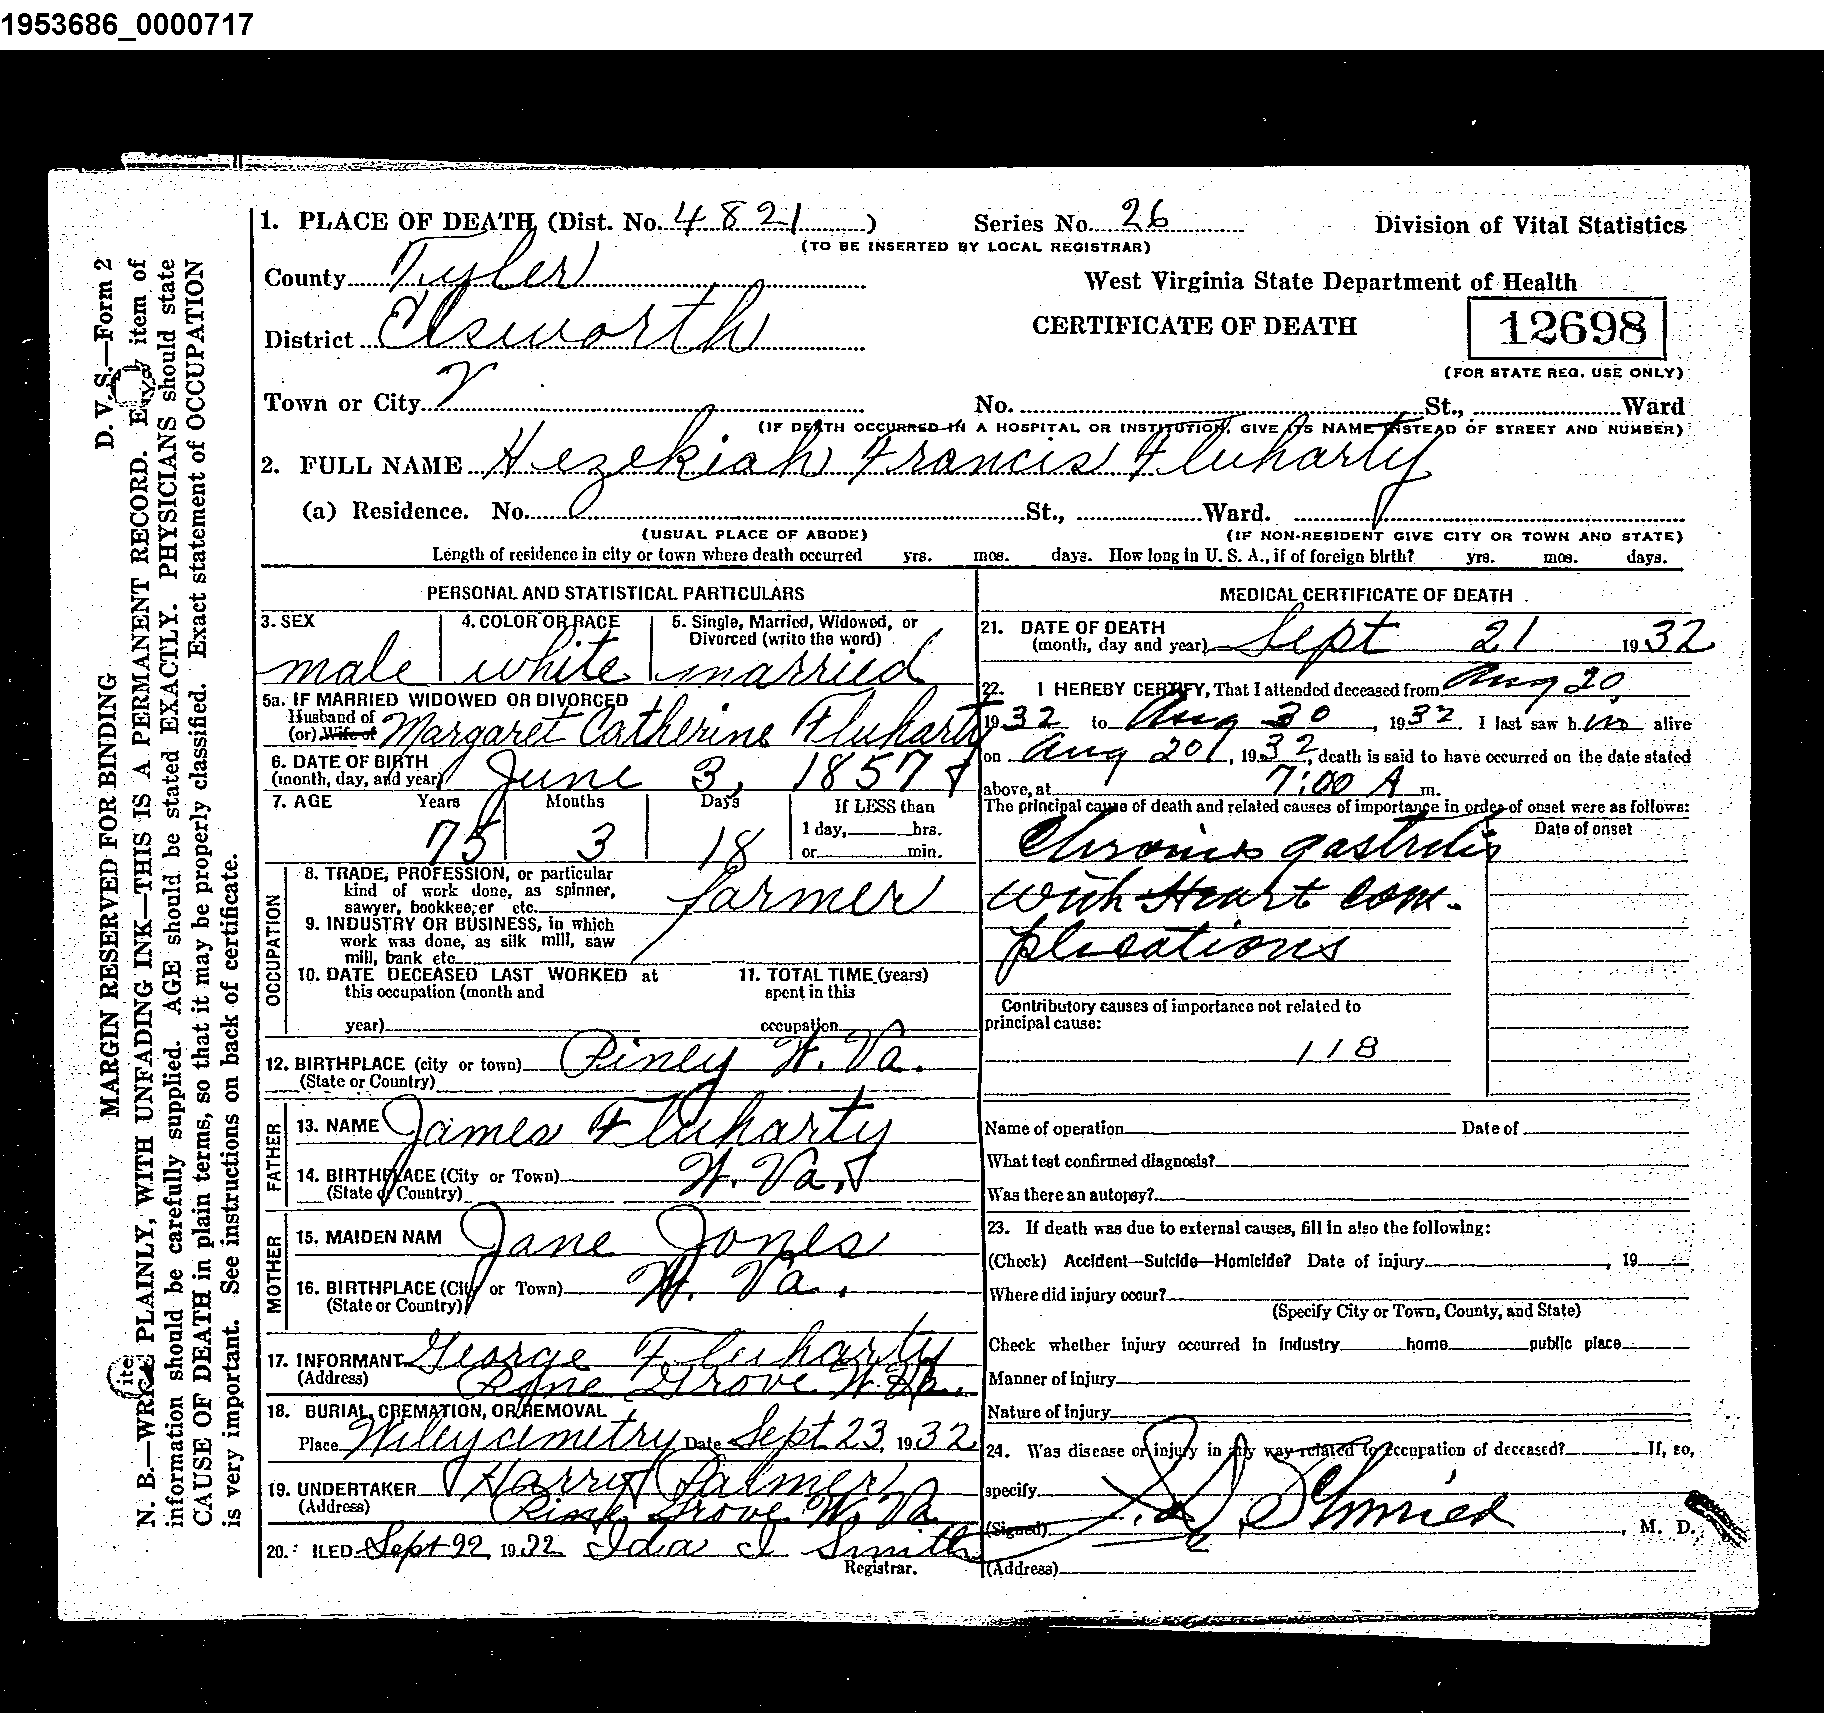 1953686_0000717
1. PLACE OF DEATH (Dist. No. 4821 ) Series No. 26 Division of Vital Statistics
(TO BE INSERTED BY LOCAL REGISTRAR)
County Tyler West Virginia State Department of Health
District Elsworth CERTIFICATE OF DEATH 12698
(FOR STATE REG. USE ONLY)
Town or City No. St., Ward
(IF DEATH OCCURRED IN A HOSPITAL OR INSTITUTION, GIVE ITS NAME INSTEAD OF STREET AND NUMBER)
2. FULL NAME Hezekiah Francis Fluharty
(a) Residence. No. St., Ward.
(USUAL PLACE OF ABODE) (IF NON-RESIDENT GIVE CITY OR TOWN AND STATE)
Length of residence in city or town where death occurred yrs. mos. days. How long in U. S. A., if of foreign birth? yrs. mos. days.
PERSONAL AND STATISTICAL PARTICULARS
3. SEX 4. COLOR OR RACE 5. Single, Married, Widowed, or
Divorced (write the word)
male white married
5a. IF MARRIED WIDOWED OR DIVORCED
Husband of
(or) Wife of Margaret Catherine Fluharty
6. DATE OF BIRTH
(month, day, and year) June 3, 1857
7. AGE Years Months Days If LESS than
1 day, hrs.
75 3 18 or min.
OCCUPATION
8. TRADE, PROFESSION, or particular
kind of work done, as spinner,
sawyer, bookkeeper etc. farmer
9. INDUSTRY OR BUSINESS, in which
work was done, as silk mill, saw
mill, bank etc
10. DATE DECEASED LAST WORKED at 11. TOTAL TIME (years)
this occupation (month and spent in this
year) occupation
12. BIRTHPLACE (city or town) Piney W. Va.
(State or Country)
FATHER
13. NAME James Fluharty
14. BIRTHPLACE (City or Town) W. Va.
(State or Country)
MOTHER
15. MAIDEN NAM Jane Jones
16. BIRTHPLACE (City or Town) W. Va.
(State or Country)
17. INFORMANT George Fluharty
(Address) Pine Grove W. Va.
18. BURIAL, CREMATION, OR REMOVAL
Place Wiley cimetry Date Sept 23, 1932
19. UNDERTAKER Harry Palmer
(Address) Pine Grove W. Va
20. ILED Sept 22 1932 Ida I Smith
Registrar.
MEDICAL CERTIFICATE OF DEATH
21. DATE OF DEATH
(month, day and year) Sept 21 1932
22. I HEREBY CERTIFY, That I attended deceased from Aug 20,
1932 to Aug 30, 1932. I last saw h im alive
on Aug 20, 1932, death is said to have occurred on the date stated
above, at 7:00 A m.
The principal cause of death and related causes of importance in order of onset were as follows:
Date of onset
Chronic gastritis
with Heart com-
plications
Contributory causes of importance not related to
principal cause:
118
Name of operation Date of
What test confirmed diagnosis?
Was there an autopsy?
23. If death was due to external causes, fill in also the following:
(Check) Accident—Suicide—Homicide? Date of injury , 19
Where did injury occur?
(Specify City or Town, County, and State)
Check whether injury occurred in industry home public place
Manner of Injury
Nature of Injury
24. Was disease or injury in any way related to occupation of deceased? If, so,
specify
(Signed) , M. D.
(Address)
D. V. S.—Form 2
MARGIN RESERVED FOR BINDING
N. B.—WRITE PLAINLY, WITH UNFADING INK—THIS IS A PERMANENT RECORD. Every item of
information should be carefully supplied. AGE should be stated EXACTLY. PHYSICIANS should state
CAUSE OF DEATH in plain terms, so that it may be properly classified. Exact statement of OCCUPATION
is very important. See instructions on back of certificate.